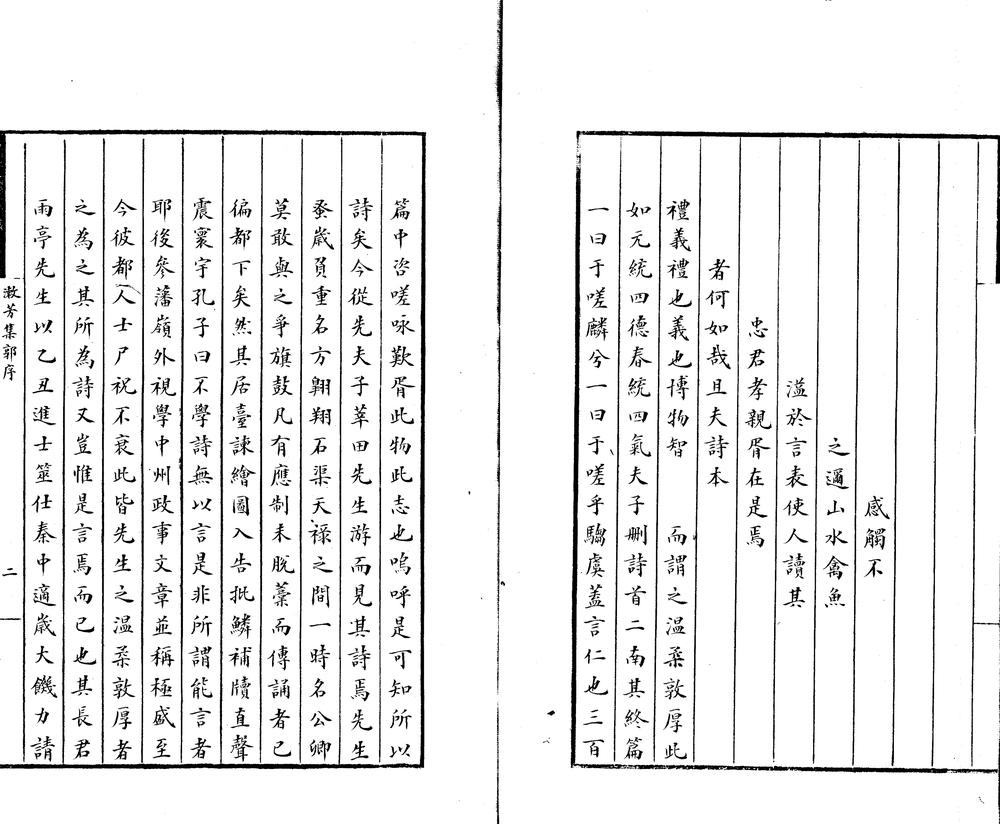 感觸不
之適山水禽魚
溢於言表使人讀其
忠君孝親胥在是焉
者何如哉且夫詩本
禮義禮也義也博物智 而謂之溫柔敦厚此
如元統四德春統四氣夫子刪詩首二南其終篇
一曰于嗟麟兮一曰于嗟乎騶虞蓋言仁也三百
篇中咨嗟咏歎胥此物此志也嗚呼是可知所以
詩矣今從先夫子莘田先生游而見其詩焉先生
蚤歲負重名方翱翔石渠天祿之間一時名公卿
莫敢與之爭旗鼓凡有應制未脫藁而傳誦者已
徧都下矣然其居臺諫繪圖入告批鱗補牘直聲
震寰宇孔子曰不學詩無以言是非所謂能言者
耶後參藩嶺外視學中州政事文章並稱極盛至
今彼都人士尸祝不衰此皆先生之溫柔敦厚者
之為之其所為詩又豈惟是言焉而已也其長君
雨亭先生以乙丑進士筮仕秦中適歲大饑力請
漱芳集郭序
二